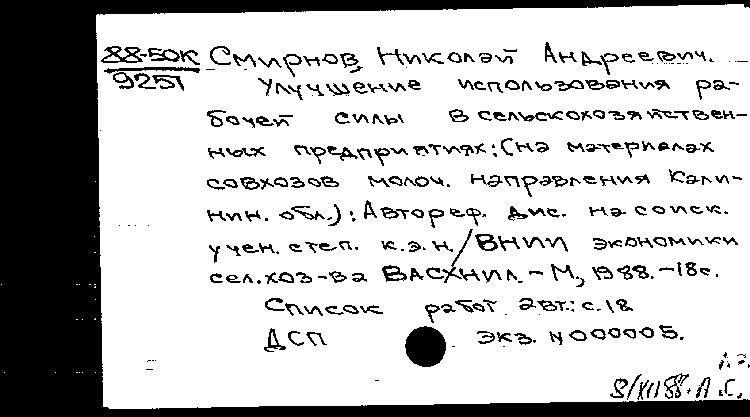 88-50К Смирнов, Николай Андреевич.
9251 Улучшение использования ра-
бочей силы в сельскохозяйствен-
ных предприятиях: (на материалах
совхозов молоч. направления Кали-
нин. обл.): Автореф. дис. на соиск.
учен. степ. к.э.н. / ВНИИ экономики
сел. хоз-ва ВАСХНИЛ. - М., 1988. - 18с.
Список работ авт.: с. 18
ДСП экз. N 000005.
8/XII 88. Л.С.